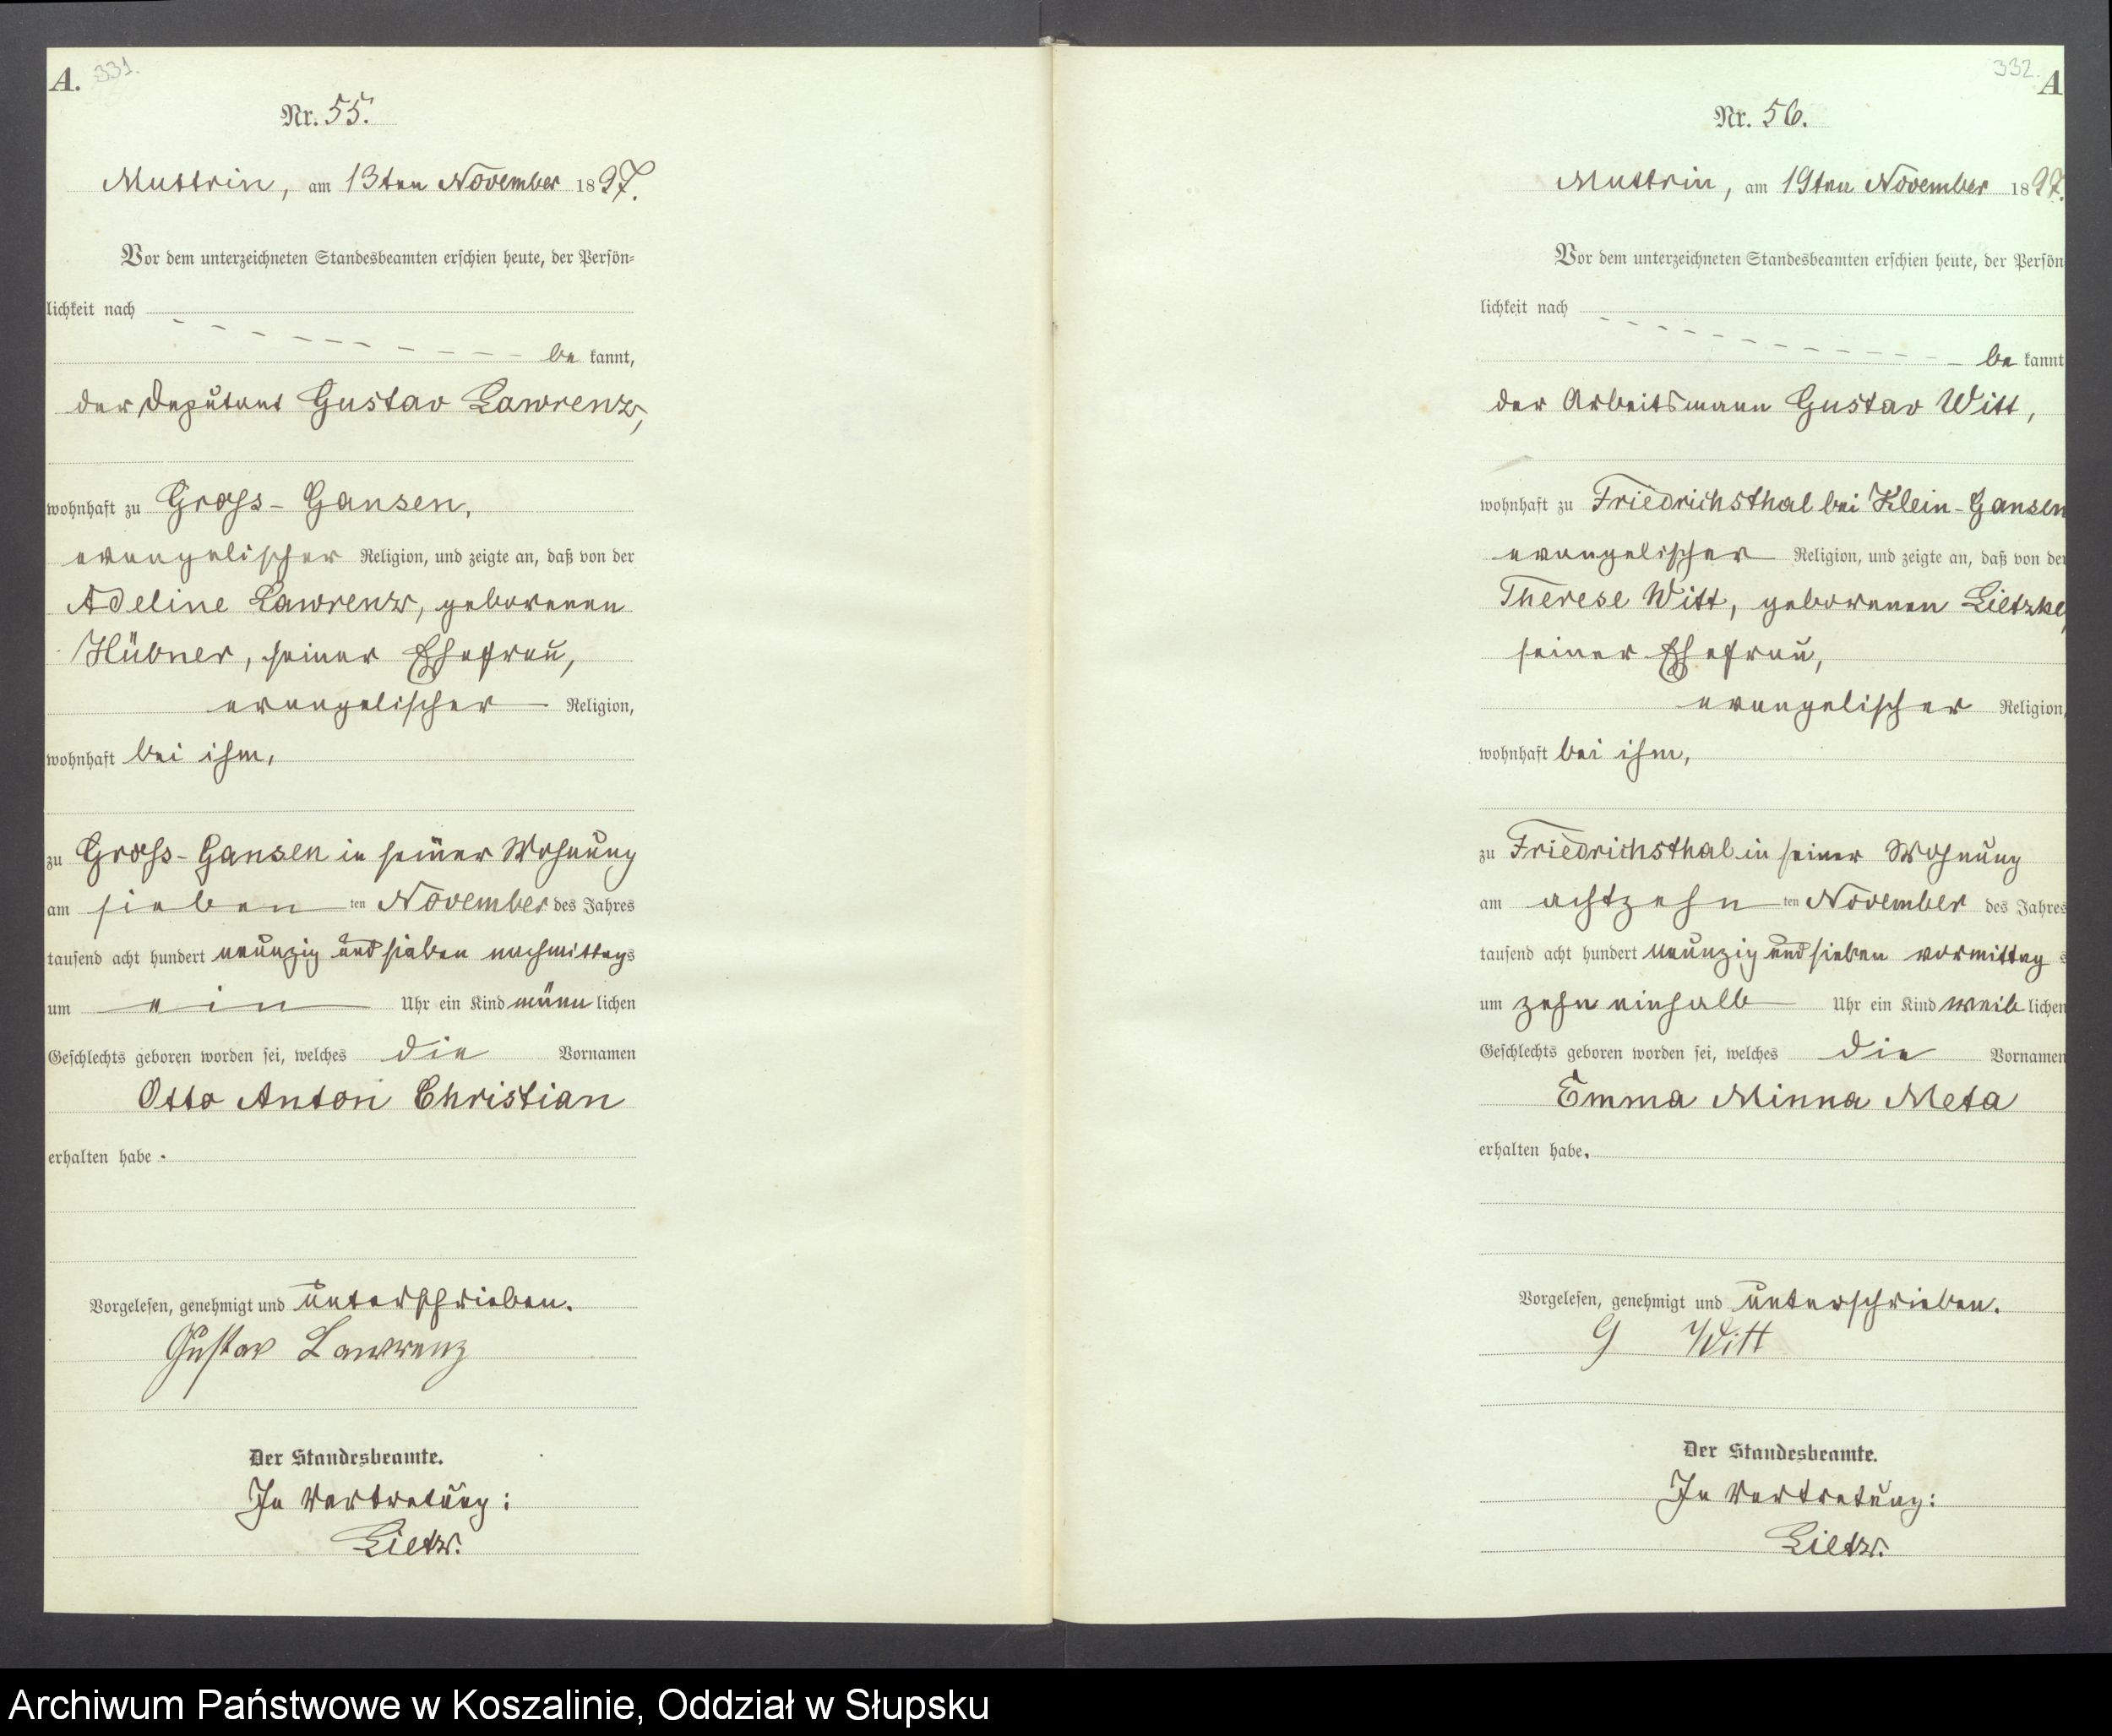 A. 331.
Nr. 55.
Muttrin, am 13ten November 1897.
Vor dem unterzeichneten Standesbeamten erschien heute, der Persön-
lichkeit nach
be kannt,
der Deputant Gustav Lawrenz,
wohnhaft zu Gross-Gansen,
evangelischer Religion, und zeigte an, daß von der
Adeline Lawrenz, geborenen
Hübner, seiner Ehefrau,
evangelischer Religion,
wohnhaft bei ihm,
zu Gross-Gansen in seiner Wohnung
am sieben ten November des Jahres
tausend acht hundert neunzig und sieben nachmittags
um ein Uhr ein Kind männ lichen
Geschlechts geboren worden sei, welches die Vornamen
Otto Anton Christian
erhalten habe.
Vorgelesen, genehmigt und unterschrieben.
Gustav Lawrenz
Der Standesbeamte.
In Vertretung:
Lietz.
332. A
Nr. 56.
Muttrin, am 19ten November 1897.
Vor dem unterzeichneten Standesbeamten erschien heute, der Persön
lichkeit nach
be kannt
der Arbeitsmann Gustav Witt,
wohnhaft zu Friedrichsthal bei Klein-Gansen
evangelischer Religion, und zeigte an, daß von der
Therese Witt, geborenen Lietzke,
seiner Ehefrau,
evangelischer Religion,
wohnhaft bei ihm,
zu Friedrichsthal in seiner Wohnung
am achtzehn ten November des Jahres
tausend acht hundert neunzig und sieben vormittag s
um zehn einhalb Uhr ein Kind weib lichen
Geschlechts geboren worden sei, welches die Vornamen
Emma Minna Meta
erhalten habe.
Vorgelesen, genehmigt und unterschrieben.
G Witt
Der Standesbeamte.
In Vertretung:
Lietz.
Archiwum Państwowe w Koszalinie, Oddział w Słupsku